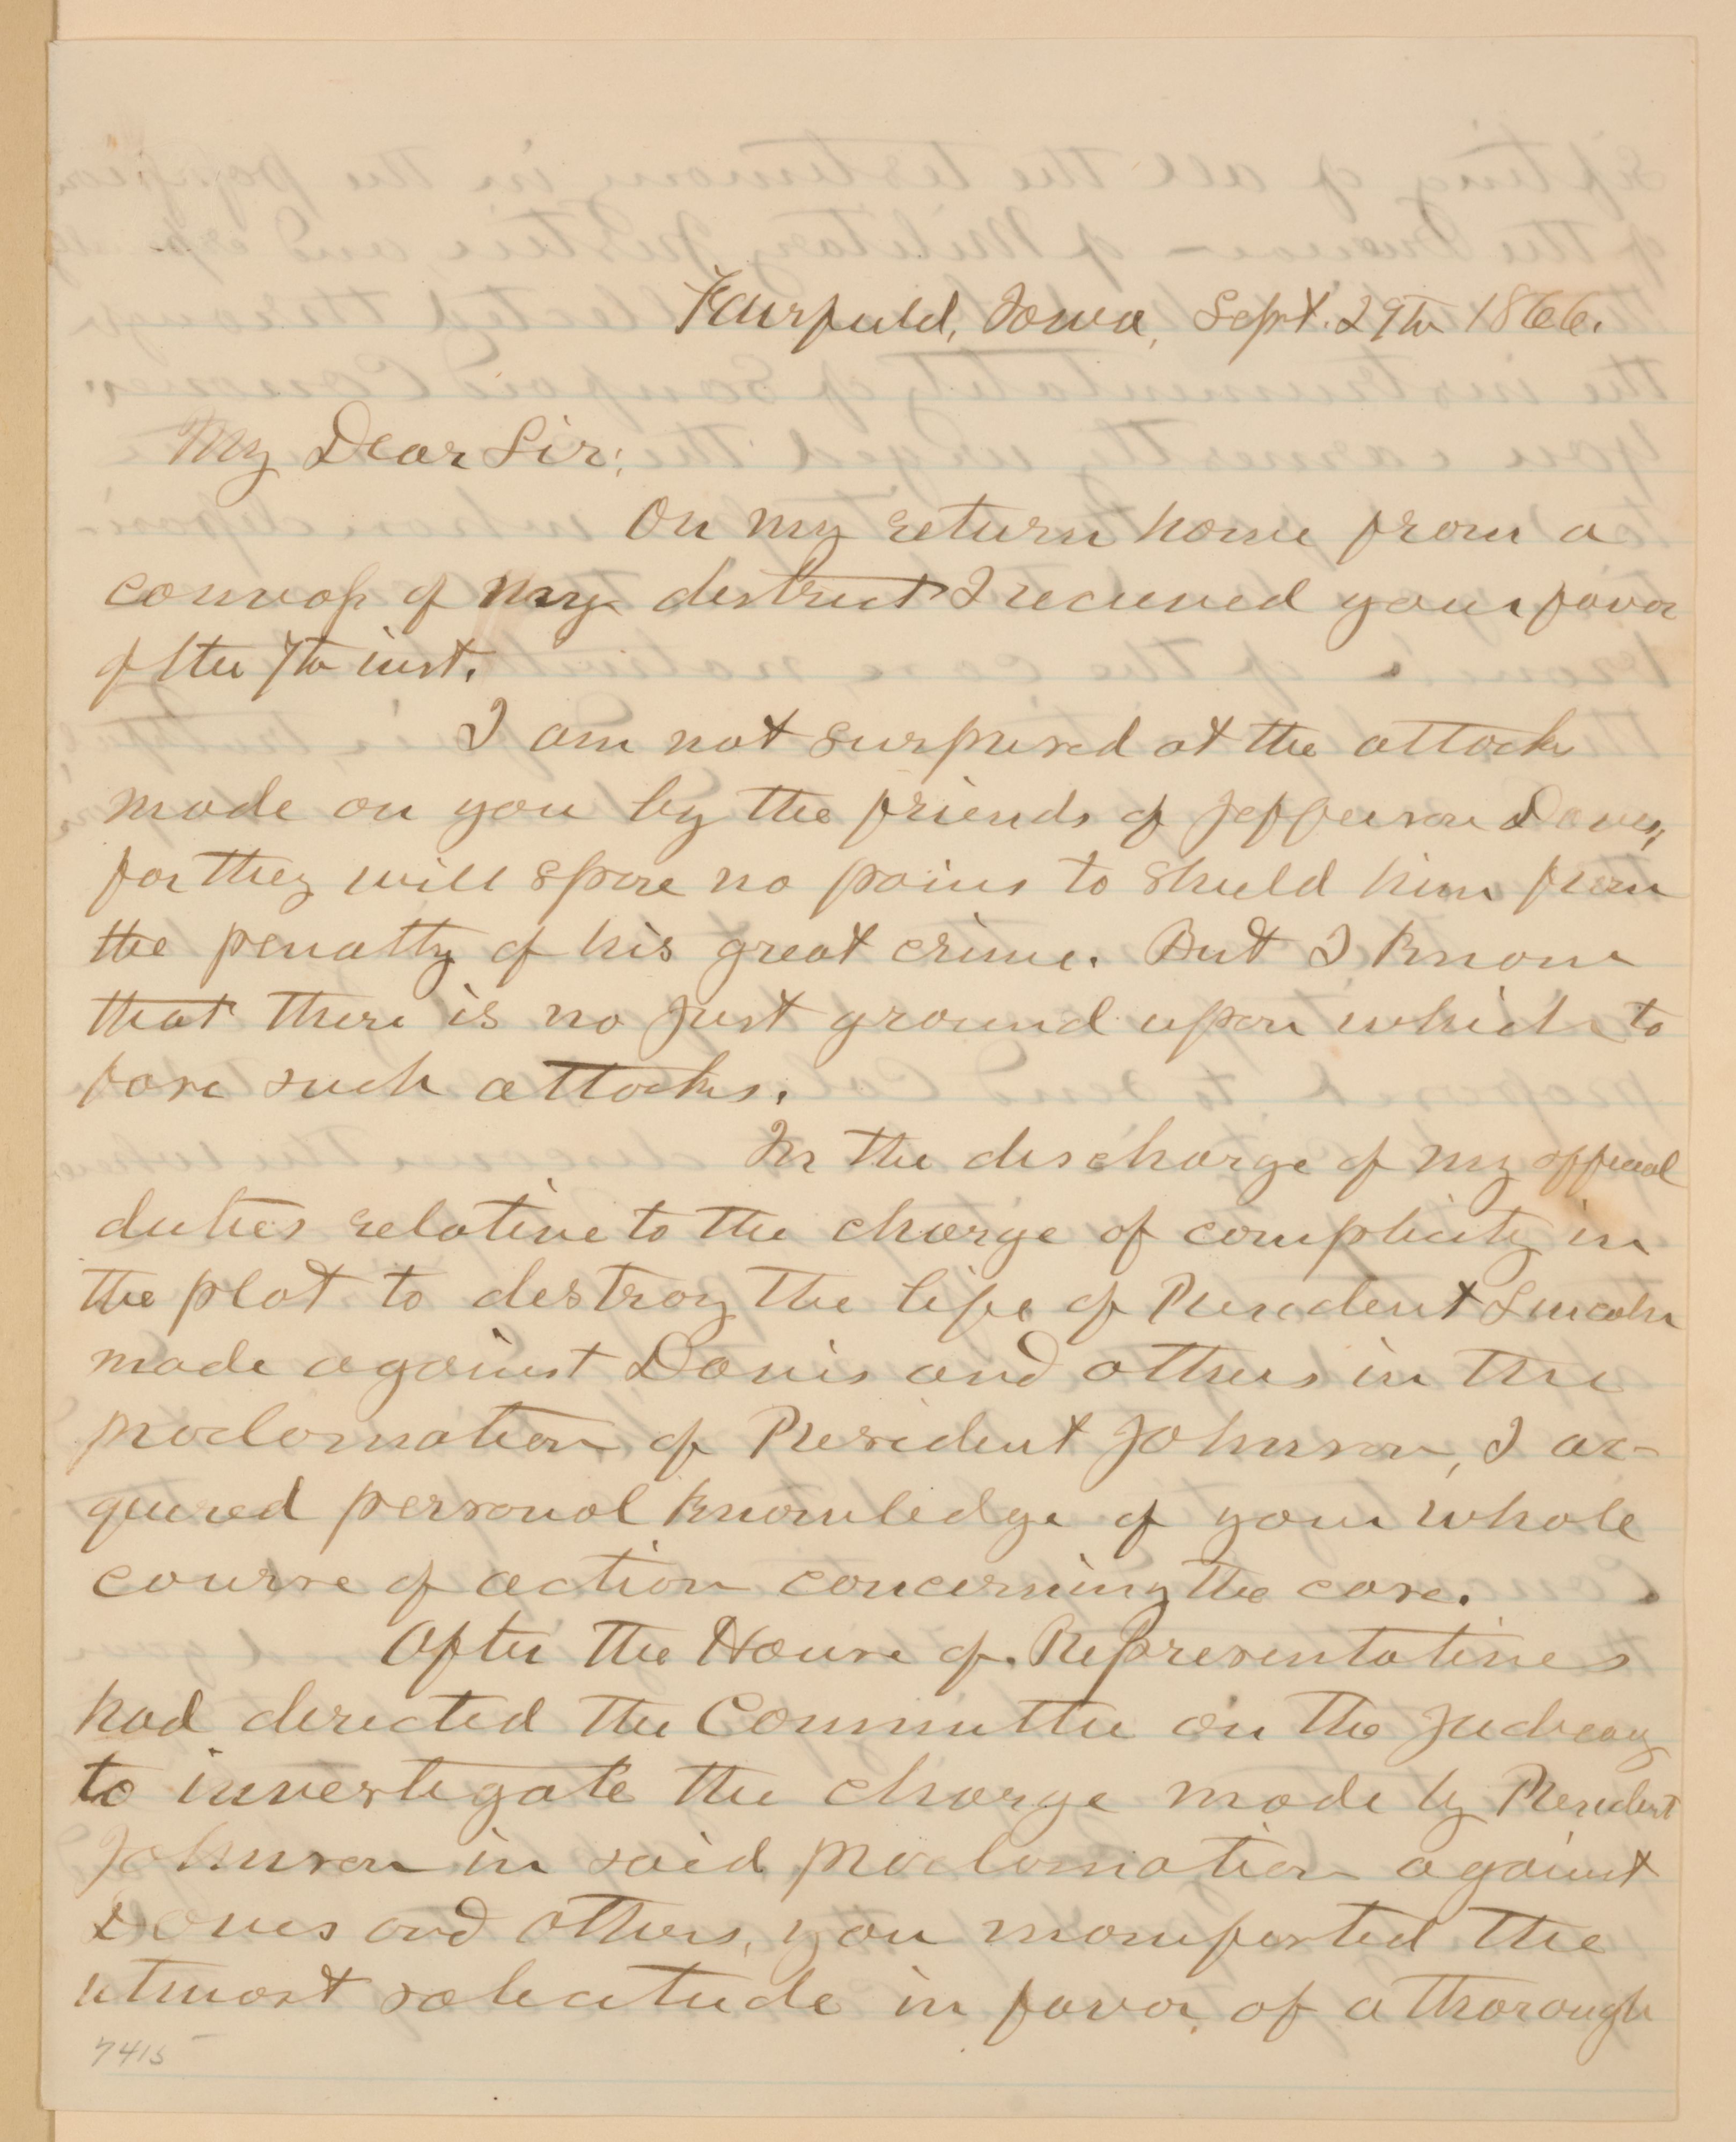 Fairfield, Iowa, Sept. 29th 1866.
My Dear Sir:
On my return home from a
canvass of my district I received your favor
of the 7th inst.
I am not surprised at the attacks
made on you by the friends of Jefferson Davis,
for they will spare no pains to shield him from
the penalty of his great crime. But I know
that there is no just ground upon which to
base such attacks.
In the discharge of my official
duties relative to the charge of complicity in
the plot to destroy the life of President Lincoln
made against Davis and others in the
proclamation of President Johnson, I ac-
quired personal knowledge of your whole
course of action concerning the case.
After the House of Representatives
had directed the Committee on the Judicary
to investigate the charge made by President
Johnson in said proclamation against
Davis and others, you manifested the
utmost solicitude in favor of a thorough
7415